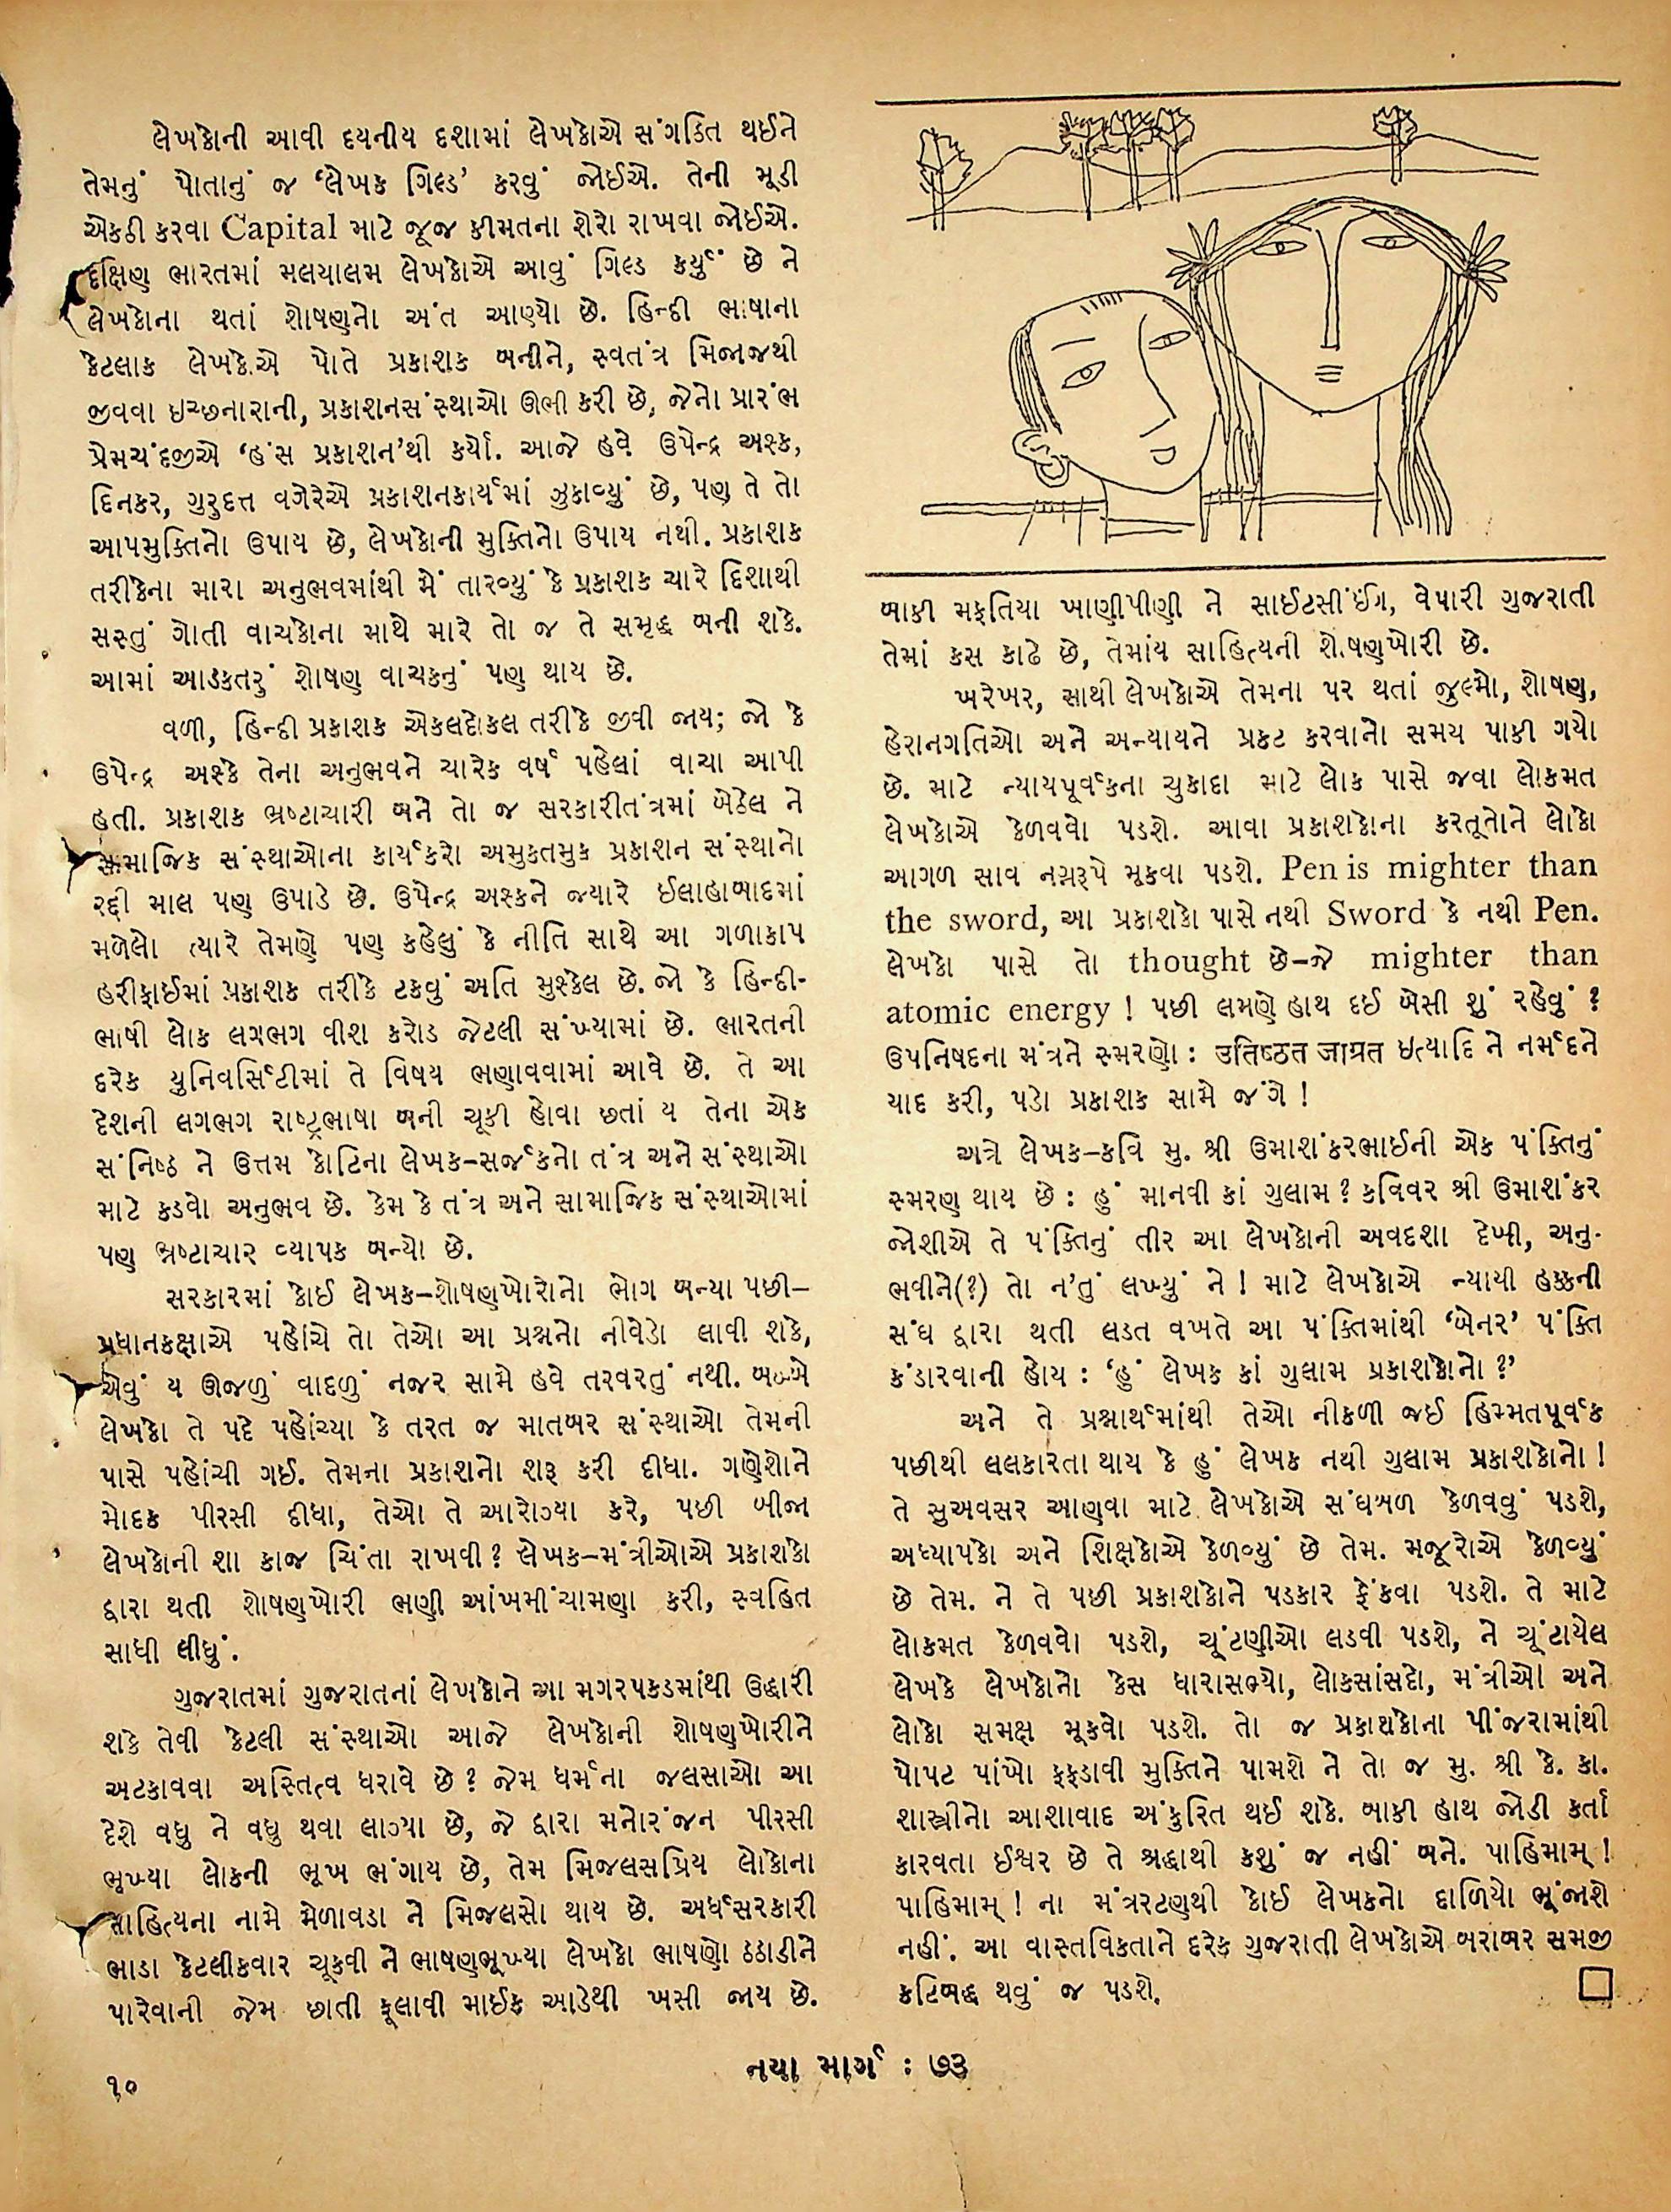 લેખકોની આવી દયનીય દશામાં લેખકોએ સંગઠિત થઈને
તેમનું પોતાનું જ ‘લેખક ગિલ્ડ’ કરવું જોઈએ. તેની મૂડી
એકઠી કરવા Capital માટે જૂજ કીમતના શેરો રાખવા જોઈએ.
દક્ષિણ ભારતમાં મલયાલમ લેખકોએ આવું ગિલ્ડ કર્યું છે ને
લેખકોના થતાં શોષણનો અંત આણ્યો છે. હિન્દી ભાષાના
કેટલાક લેખકોએ પોતે પ્રકાશક બનીને, સ્વતંત્ર મિજાજથી
જીવવા ઇચ્છનારાની, પ્રકાશનસંસ્થાઓ ઊભી કરી છે, જેનો પ્રારંભ
પ્રેમચંદજીએ ‘હંસ પ્રકાશન’થી કર્યો. આજે હવે ઉપેન્દ્ર અશ્ક,
દિનકર, ગુરુદત્ત વગેરેએ પ્રકાશનકાર્યમાં ઝુકાવ્યું છે, પણ તે તો
આપમુક્તિનો ઉપાય છે, લેખકોની મુક્તિનો ઉપાય નથી. પ્રકાશક
તરીકેના મારા અનુભવમાંથી મેં તારવ્યું કે પ્રકાશક ચારે દિશાથી
સસ્તું ગોતી વાચકોના માથે મારે તો જ તે સમૃદ્ધ બની શકે.
આમાં આડકતરું શોષણ વાચકનું પણ થાય છે.
વળી, હિન્દી પ્રકાશક એકલદોકલ તરીકે જીવી જાય; જો કે
ઉપેન્દ્ર અશ્કે તેના અનુભવને ચારેક વર્ષ પહેલાં વાચા આપી
હતી. પ્રકાશક ભ્રષ્ટાચારી બને તો જ સરકારીતંત્રમાં બેઠેલ ને
સામાજિક સંસ્થાઓના કાર્યકરો અમુકતમુક પ્રકાશન સંસ્થાનો
રદ્દી માલ પણ ઉપાડે છે. ઉપેન્દ્ર અશ્કને જ્યારે ઈલાહાબાદમાં
મળેલો ત્યારે તેમણે પણ કહેલું કે નીતિ સાથે આ ગળાકાપ
હરીફાઈમાં પ્રકાશક તરીકે ટકવું અતિ મુશ્કેલ છે. જો કે હિન્દી-
ભાષી લોક લગભગ વીશ કરોડ જેટલી સંખ્યામાં છે. ભારતની
દરેક યુનિવર્સિટીમાં તે વિષય ભણાવવામાં આવે છે. તે આ
દેશની લગભગ રાષ્ટ્રભાષા બની ચૂકી હોવા છતાં ય તેના એક
સંનિષ્ઠ ને ઉત્તમ કોટિના લેખક-સર્જકનો તંત્ર અને સંસ્થાઓ
માટે કડવો અનુભવ છે. કેમ કે તંત્ર અને સામાજિક સંસ્થાઓમાં
પણ ભ્રષ્ટાચાર વ્યાપક બન્યો છે.
સરકારમાં કોઈ લેખક-શોષણખોરોનો ભોગ બન્યા પછી-
પ્રધાનકક્ષાએ પહોંચે તો તેઓ આ પ્રશ્નનો નીવેડો લાવી શકે,
એવું ય ઊજળું વાદળું નજર સામે હવે તરવરતું નથી. બબ્બે
લેખકો તે પદે પહોંચ્યા કે તરત જ માતબર સંસ્થાઓ તેમની
પાસે પહોંચી ગઈ. તેમના પ્રકાશનો શરૂ કરી દીધા. ગણેશોને
મોદક પીરસી દીધા, તેઓ તે આરોગ્યા કરે, પછી બીજા
લેખકોની શા કાજ ચિંતા રાખવી? લેખક-મંત્રીઓએ પ્રકાશકો
દ્વારા થતી શોષણખોરી ભણી આંખમીંચામણા કરી, સ્વહિત
સાધી લીધું.
ગુજરાતમાં ગુજરાતનાં લેખકોને આ મગરપકડમાંથી ઉદ્ધારી
શકે તેવી કેટલી સંસ્થાઓ આજે લેખકોની શોષણખોરીને
અટકાવવા અસ્તિત્વ ધરાવે છે? જેમ ધર્મના જલસાઓ આ
દેશે વધુ ને વધુ થવા લાગ્યા છે, જે દ્વારા મનોરંજન પીરસી
ભૂખ્યા લોકની ભૂખ ભંગાય છે, તેમ મિજલસપ્રિય લોકોના
સાહિત્યના નામે મેળાવડા ને મિજલસો થાય છે. અર્ધસરકારી
ભાડા કેટલીકવાર ચૂકવી ને ભાષણભૂખ્યા લેખકો ભાષણો ઠઠાડીને
પારેવાની જેમ છાતી ફૂલાવી માઈક આડેથી ખસી જાય છે.
બાકી મફતિયા ખાણીપીણી ને સાઈટસીઈંગ, વેપારી ગુજરાતી
તેમાં કસ કાઢે છે, તેમાંય સાહિત્યની શોષણખોરી છે.
ખરેખર, સાથી લેખકોએ તેમના પર થતાં જુલ્મો, શોષણ,
હેરાનગતિઓ અને અન્યાયને પ્રકટ કરવાનો સમય પાકી ગયો
છે. માટે ન્યાયપૂર્વકના ચુકાદા માટે લોક પાસે જવા લોકમત
લેખકોએ કેળવવો પડશે. આવા પ્રકાશકોના કરતૂતોને લોકો
આગળ સાવ નગ્નરૂપે મૂકવા પડશે. Pen is mighter than
the sword, આ પ્રકાશકો પાસે નથી Sword કે નથી Pen.
લેખકો પાસે તો thought છે-જે mighter than
atomic energy ! પછી લમણે હાથ દઈ બેસી શું રહેવું ?
ઉપનિષદના મંત્રને સ્મરણો : उतिष्ठत जाग्रत ઇત્યાદિ ને નર્મદને
યાદ કરી, પડો પ્રકાશક સામે જંગે !
અત્રે લેખક-કવિ મુ. શ્રી ઉમાશંકરભાઈની એક પંક્તિનું
સ્મરણ થાય છે : હું માનવી કાં ગુલામ ? કવિવર શ્રી ઉમાશંકર
જોશીએ તે પંક્તિનું તીર આ લેખકોની અવદશા દેખી, અનુ-
ભવીને(?) તો ન’તું લખ્યું ને ! માટે લેખકોએ ન્યાયી હક્કની
સંઘ દ્વારા થતી લડત વખતે આ પંક્તિમાંથી ‘બેનર’ પંક્તિ
કંડારવાની હોય : ‘હું લેખક કાં ગુલામ પ્રકાશકોનો ?’
અને તે પ્રશ્નાર્થમાંથી તેઓ નીકળી જઈ હિમ્મતપૂર્વક
પછીથી લલકારતા થાય કે હું લેખક નથી ગુલામ પ્રકાશકોનો !
તે સુઅવસર આણવા માટે લેખકોએ સંઘબળ કેળવવું પડશે,
અધ્યાપકો અને શિક્ષકોએ કેળવ્યું છે તેમ. મજૂરોએ કેળવ્યું
છે તેમ. ને તે પછી પ્રકાશકોને પડકાર ફેંકવા પડશે. તે માટે
લોકમત કેળવવો પડશે, ચૂંટણીઓ લડવી પડશે, ને ચૂંટાયેલ
લેખકે લેખકોનો કેસ ધારાસભ્યો, લોકસાંસદો, મંત્રીઓ અને
લોકો સમક્ષ મૂકવો પડશે. તો જ પ્રકાશકોના પીંજરામાંથી
પોપટ પાંખો ફફડાવી મુક્તિને પામશે ને તો જ મુ. શ્રી કે. કા.
શાસ્ત્રીનો આશાવાદ અંકુરિત થઈ શકે. બાકી હાથ જોડી કર્તા
કારવતા ઈશ્વર છે તે શ્રદ્ધાથી કશું જ નહીં બને. પાહિમામ્ !
પાહિમામ્ ! ના મંત્રરટણથી કોઈ લેખકનો દાળિયો ભૂંજાશે
નહીં. આ વાસ્તવિકતાને દરેક ગુજરાતી લેખકોએ બરાબર સમજી
કટિબદ્ધ થવું જ પડશે.
નયા માર્ગ : ૭૩
૧૦